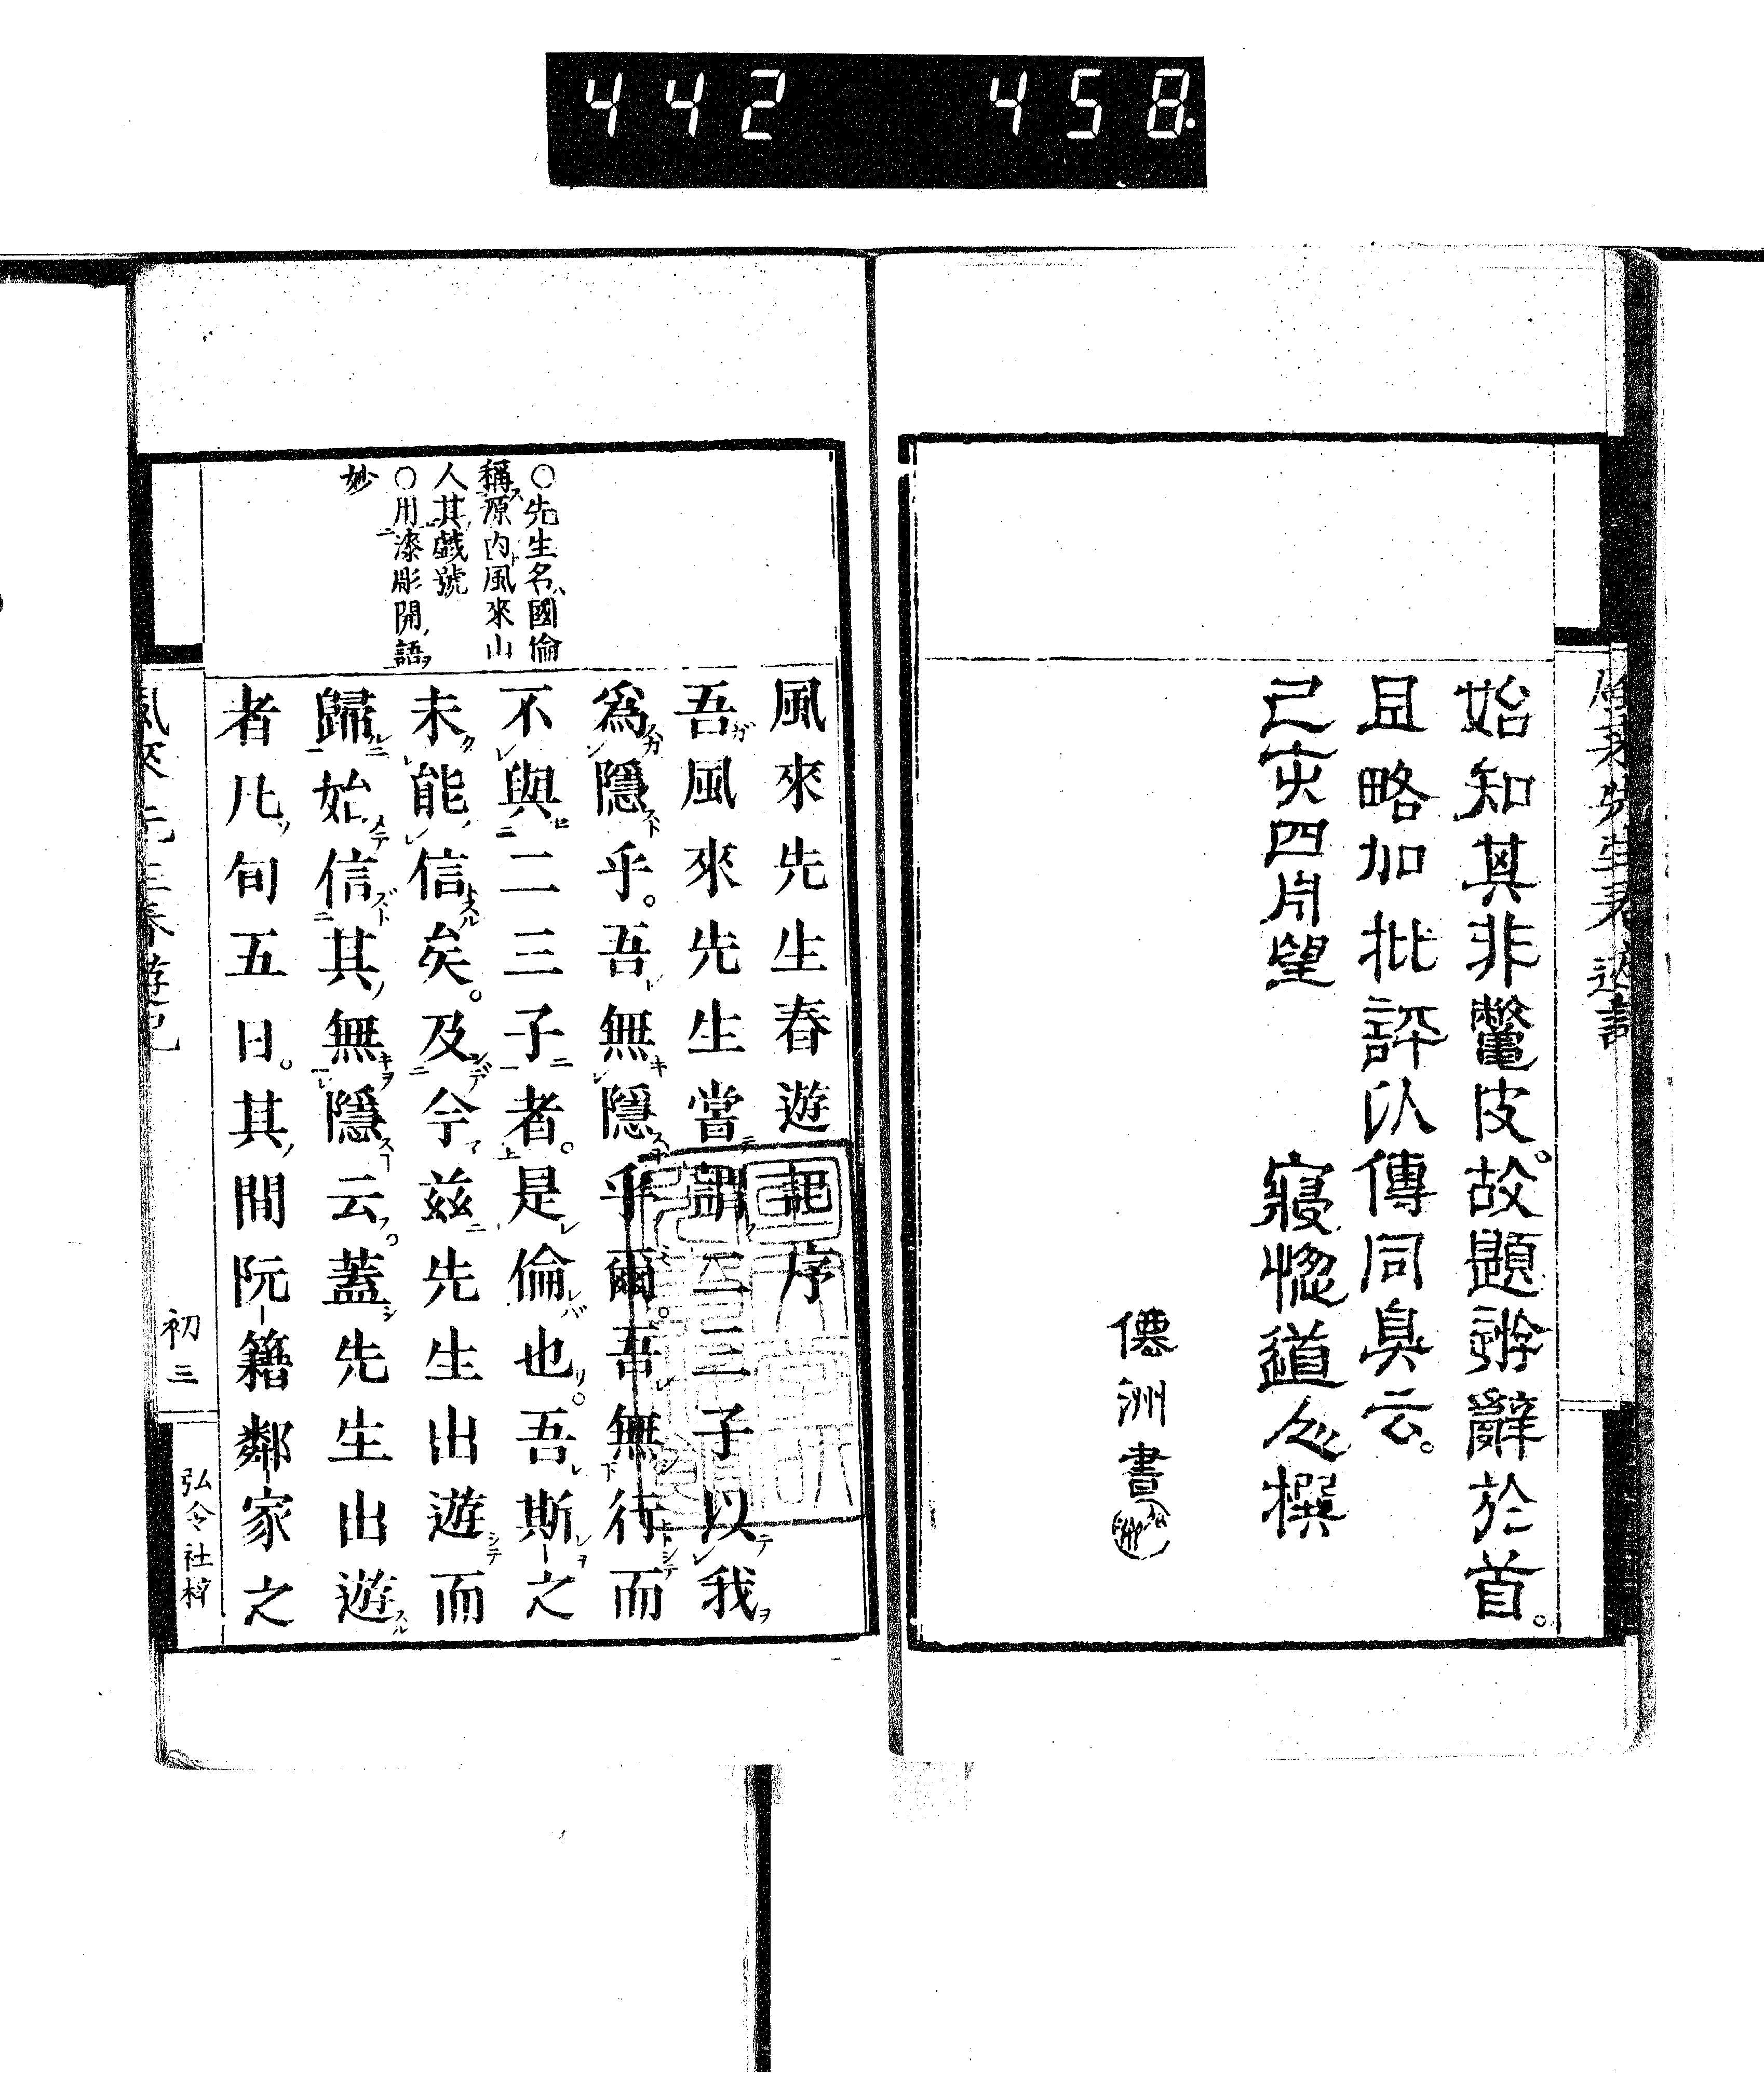 442 458.
始知其非鼈皮。故題辨辭於首。
且略加批評以傳同臭云。
己亥四月望 寢惚道人撰
僊洲書
風來先生春遊記序
吾風來先生嘗謂二三子以我
爲隱乎。吾無隱乎爾。吾無行而
不與二三子者。是倫也。吾斯之
未能信矣。及今茲先生出遊而
歸始信其無隱云。蓋先生出遊
者凡旬五日。其間阮籍鄰家之
○先生名國倫
稱源内風來山
人其戯號
○用漆彫開語
妙
風來先生春遊記
初三
弘令社梓